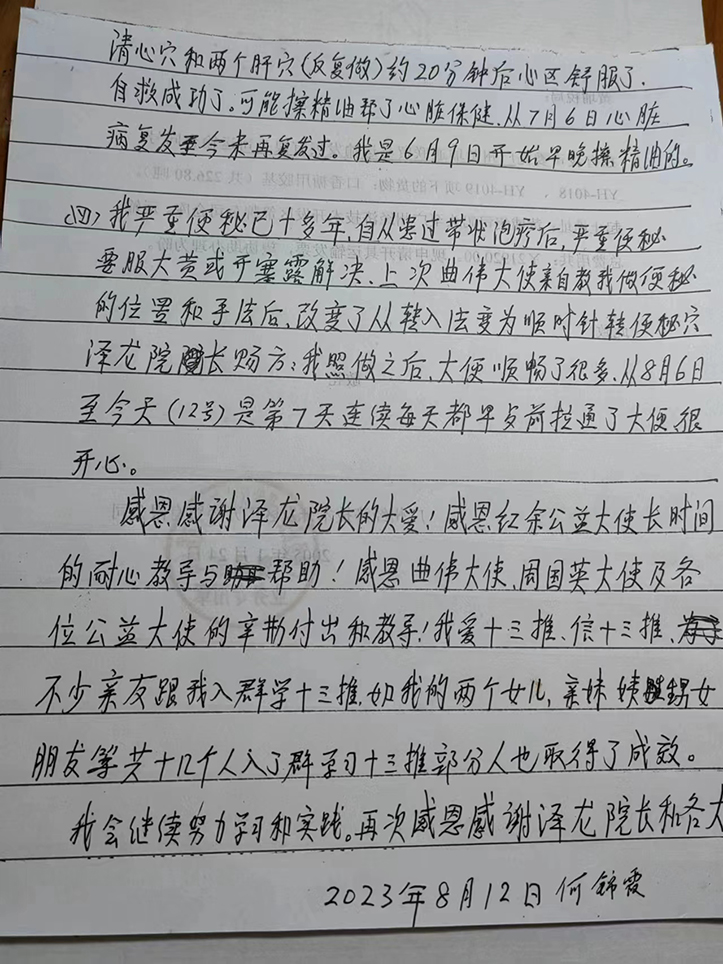 清心穴和两个肝穴(反复做)约20分钟后心区舒服了.
自救成功了。可能擦精油帮了心脏保健.从7月6日心脏
病复发至今未再复发过。我是6月9日开始早晚擦精油的。
YH-4019 项下的货物:
(四)我严重便秘已十多年,自从患过带状泡疹后,严重便秘
要服大黄或开塞露解决、上次曲伟大使亲自教我做便秘
的位置和手法后、改变了从转入法变为顺时针转便秘穴
泽龙院长赐方:我照做之后、大便顺畅了很多、从8月6日
至今天(12号)是第7天连续每天都早歺前拉通了大便、很
开心。
感恩感谢泽龙院长的大爱!感恩红余公益大使长时间
的耐心教导与帮助!感恩曲伟大使、周国英大使及各
位公益大使的辛勤付出和教导!我爱十三推、信十三推、
不少亲友跟我入群学十三推.如我的两个女儿,亲妹 姨甥女
朋友等共十几个人入了群学习十三推部分人也取得了成效。
我会继续努力学习和实践。再次感恩感谢泽龙院长和各大
2023年8月12日 何锦霞